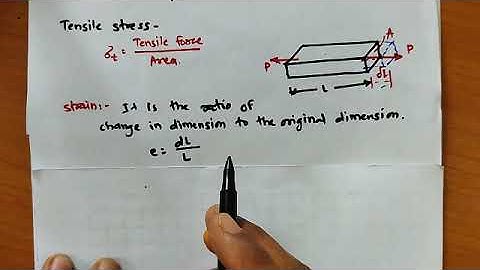 Tensile stress -
σt = Tensile force / Area
A
P
P
dL
L
strain:- It is the ratio of
change in dimension to the original dimension.
e = dL / L